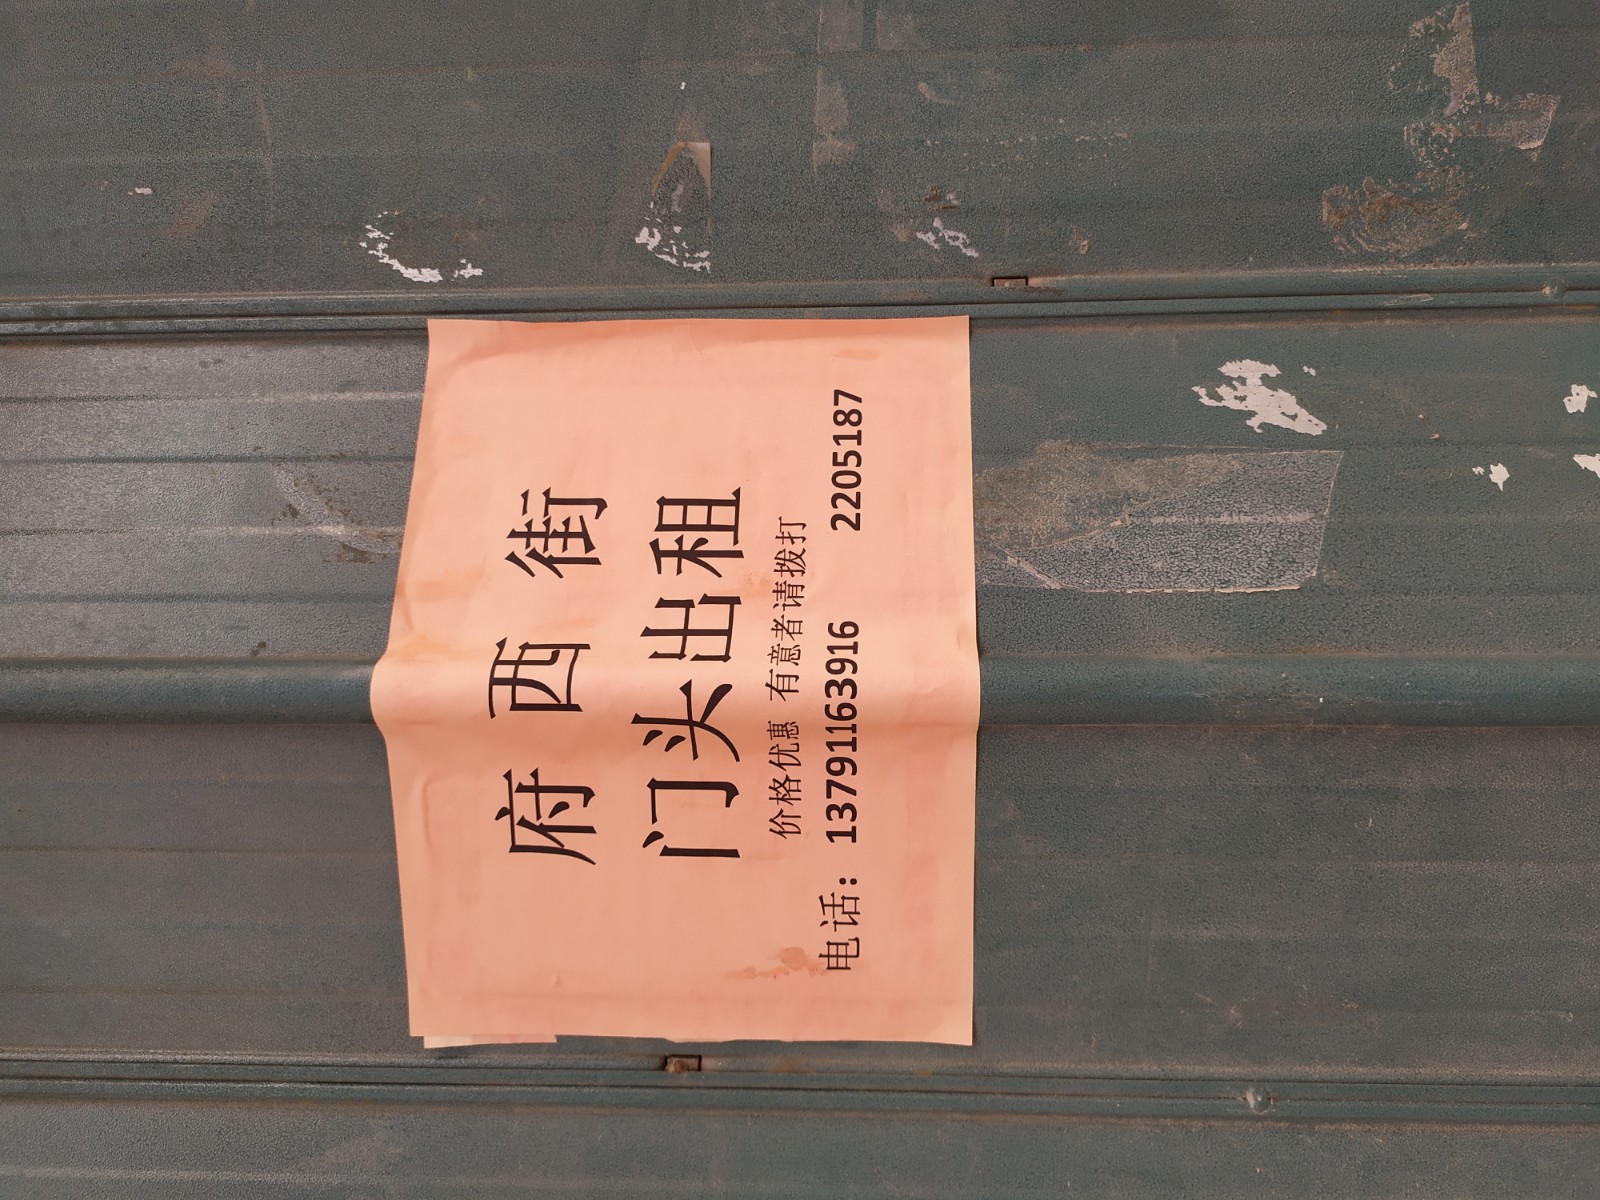 府西街
门头出租
价格优惠 有意者请拨打
电话：13791163916 2205187